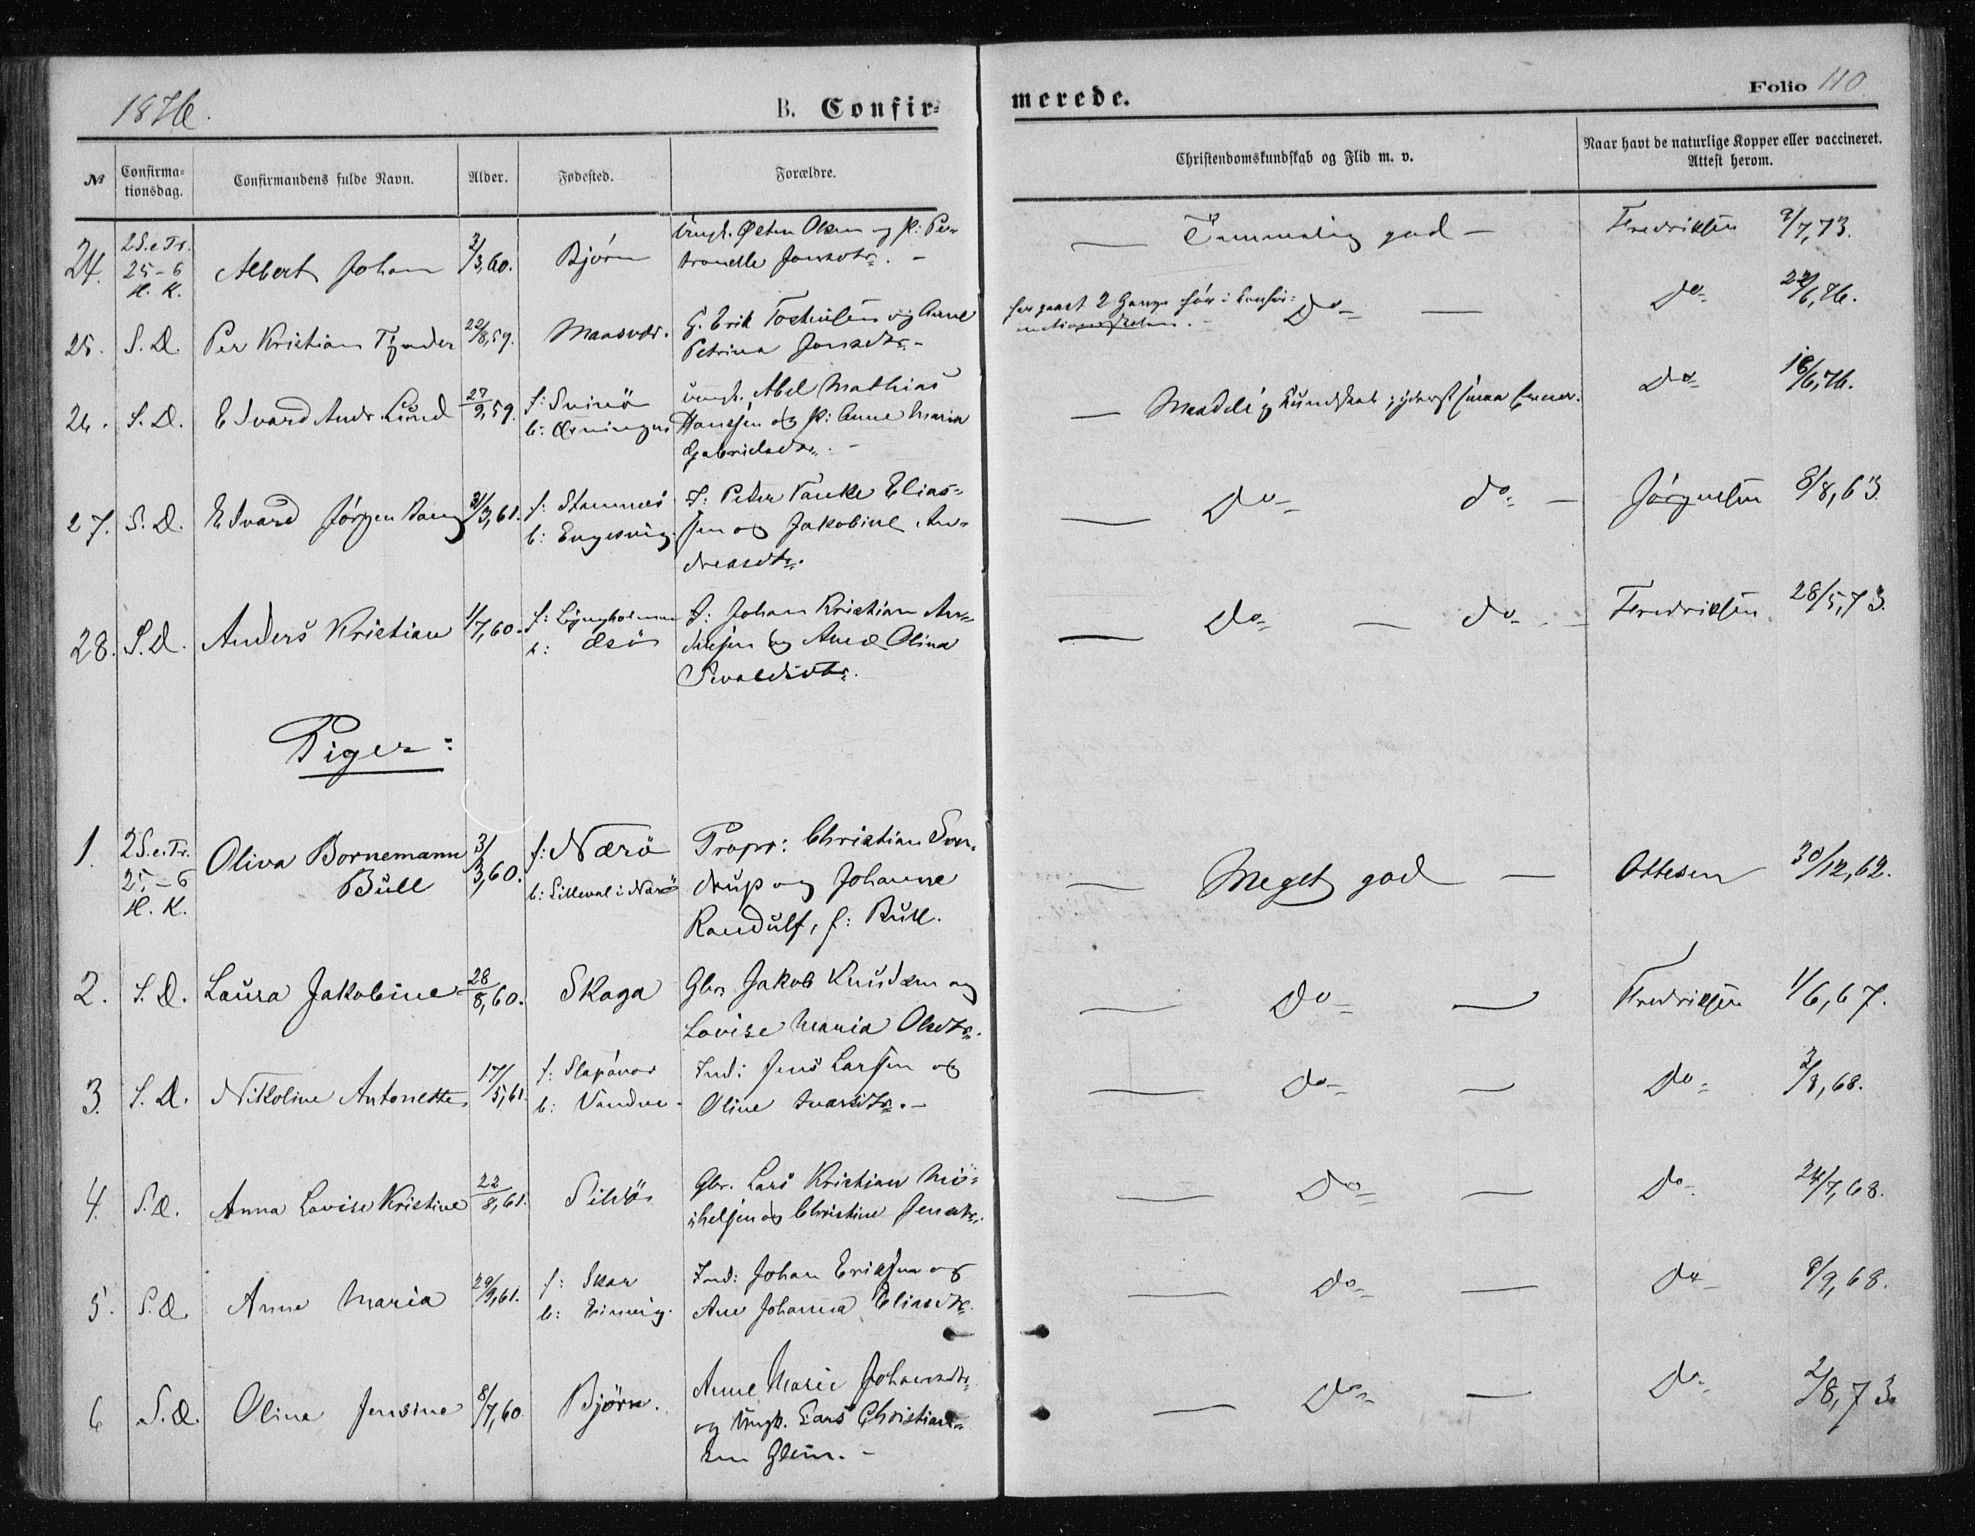 1876.
B. Confir-
merede.
Folio 110
№
Confirma-
tionsdag.
Confirmandens fulde Navn.
Alder.
Fødested.
Forældre.
Christendomskundskab og Flid m. v.
Naar havt de naturlige Kopper eller vaccineret.
Attest herom.
24. 2 S. e. Tr. 25-6 H. K. Albert Johan 2/3,60. Bjørn Ungk. Østen Olsen og P: Pe-
tronelle Jonsdtr. –
— Temmelig god – Fredriksen 9/7,73.
25. S. D. Per Kristian Tjonder 22/8,59. Maasvær. G. Erik og Anne
Petrina Jonsdtr. –
2 Gange før i Do — Do 22/6,76.
26. S. D. Edvard Andr. Lund 27/9,59. f: Svinö
b:
Ungk. Abel Mathias
Hansen og P: Anne Maria
Gabrielsdtr. –
— Maadelig Kundskab; yderst smaa Evner. Do 16/6,76.
27. S. D. Edvard Jørgen 31/3,61. f: Stamnes
b: Engesvig.
I: Peter Tanke Elias-
sen og Jakobine An-
dreasdtr.
— Do do. – Jørgensen 8/8,63.
28. S. D. Anders Kristian 1/7,60. f: Lyngholmen
b:
I: Johan Kristian An-
dersen og Anne Olina
Sivaldsdtr.
— Do — do — Fredriksen 28/5,73.
Piger:
1. 2 S. e. Tr. 25-6 H. K. Oliva Bornemann
Bull
3/3,60. f: Nærö
b: i Nærö
Propr: Christian Son-
drup og Johanne
Randulf, f: Bull.
— Meget god — Ottesen 30/12,62.
2. S. D. Laura Jakobine 28/8,60. Skaga Gbr. Jakob Knudsen og
Lovise Maria Olsdtr.
— Do — Fredriksen 1/6,67.
3. S. D. Nikoline Antonette 17/5,61. f: Slapövar
b: Vandve.
Ind: Jens Larsen og
Oline Ivarsdtr. –
— do — Do 3/8,68.
4. S. D. Anna Lovise Kristine 22/8,61. Sildö Gbr. Lars Kristian Mi-
chelsen og Christine Jensdtr.
— Do — Do 24/7,68.
5. S. D. Anne Maria 29/9,61. f: Skar
b:
Ind: Johan Eriksen og
Ane Johanna Eliasdtr.
— Do — Do 8/9,68.
6 S. D. Olina Jensine 8/7,60. Bjørn. Anne Marie Johannsdtr.
og Ungk. Lars Christian-
sen Glein. –
— Do — Do 2/8,73.